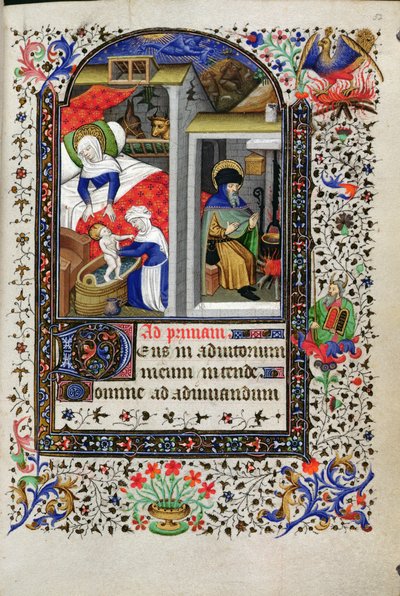 52
Ad primam
Deus in adiutorium
meum intende
Domine ad adiuuandum